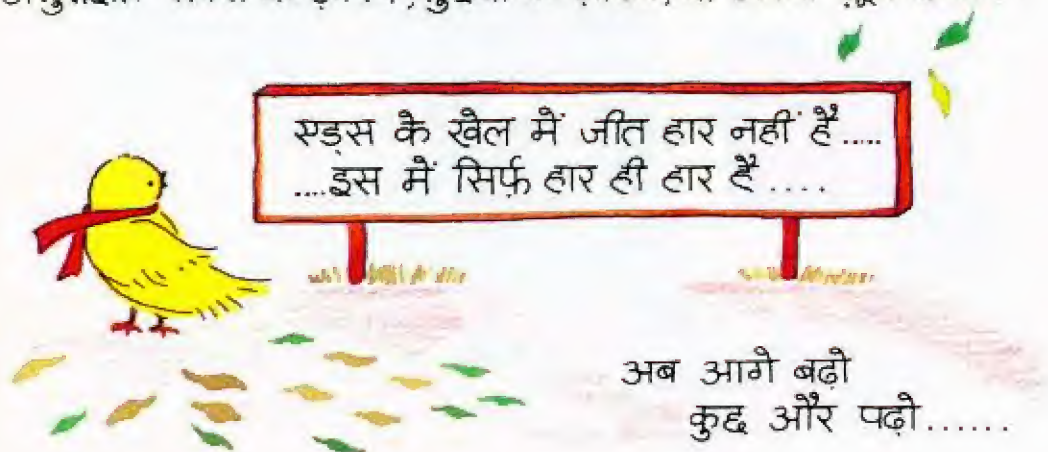 एड्स के खेल में जीत हार नहीं है.....
....इस में सिर्फ़ हार ही हार है....
अब आगे बढ़ो
कुछ और पढ़ो......